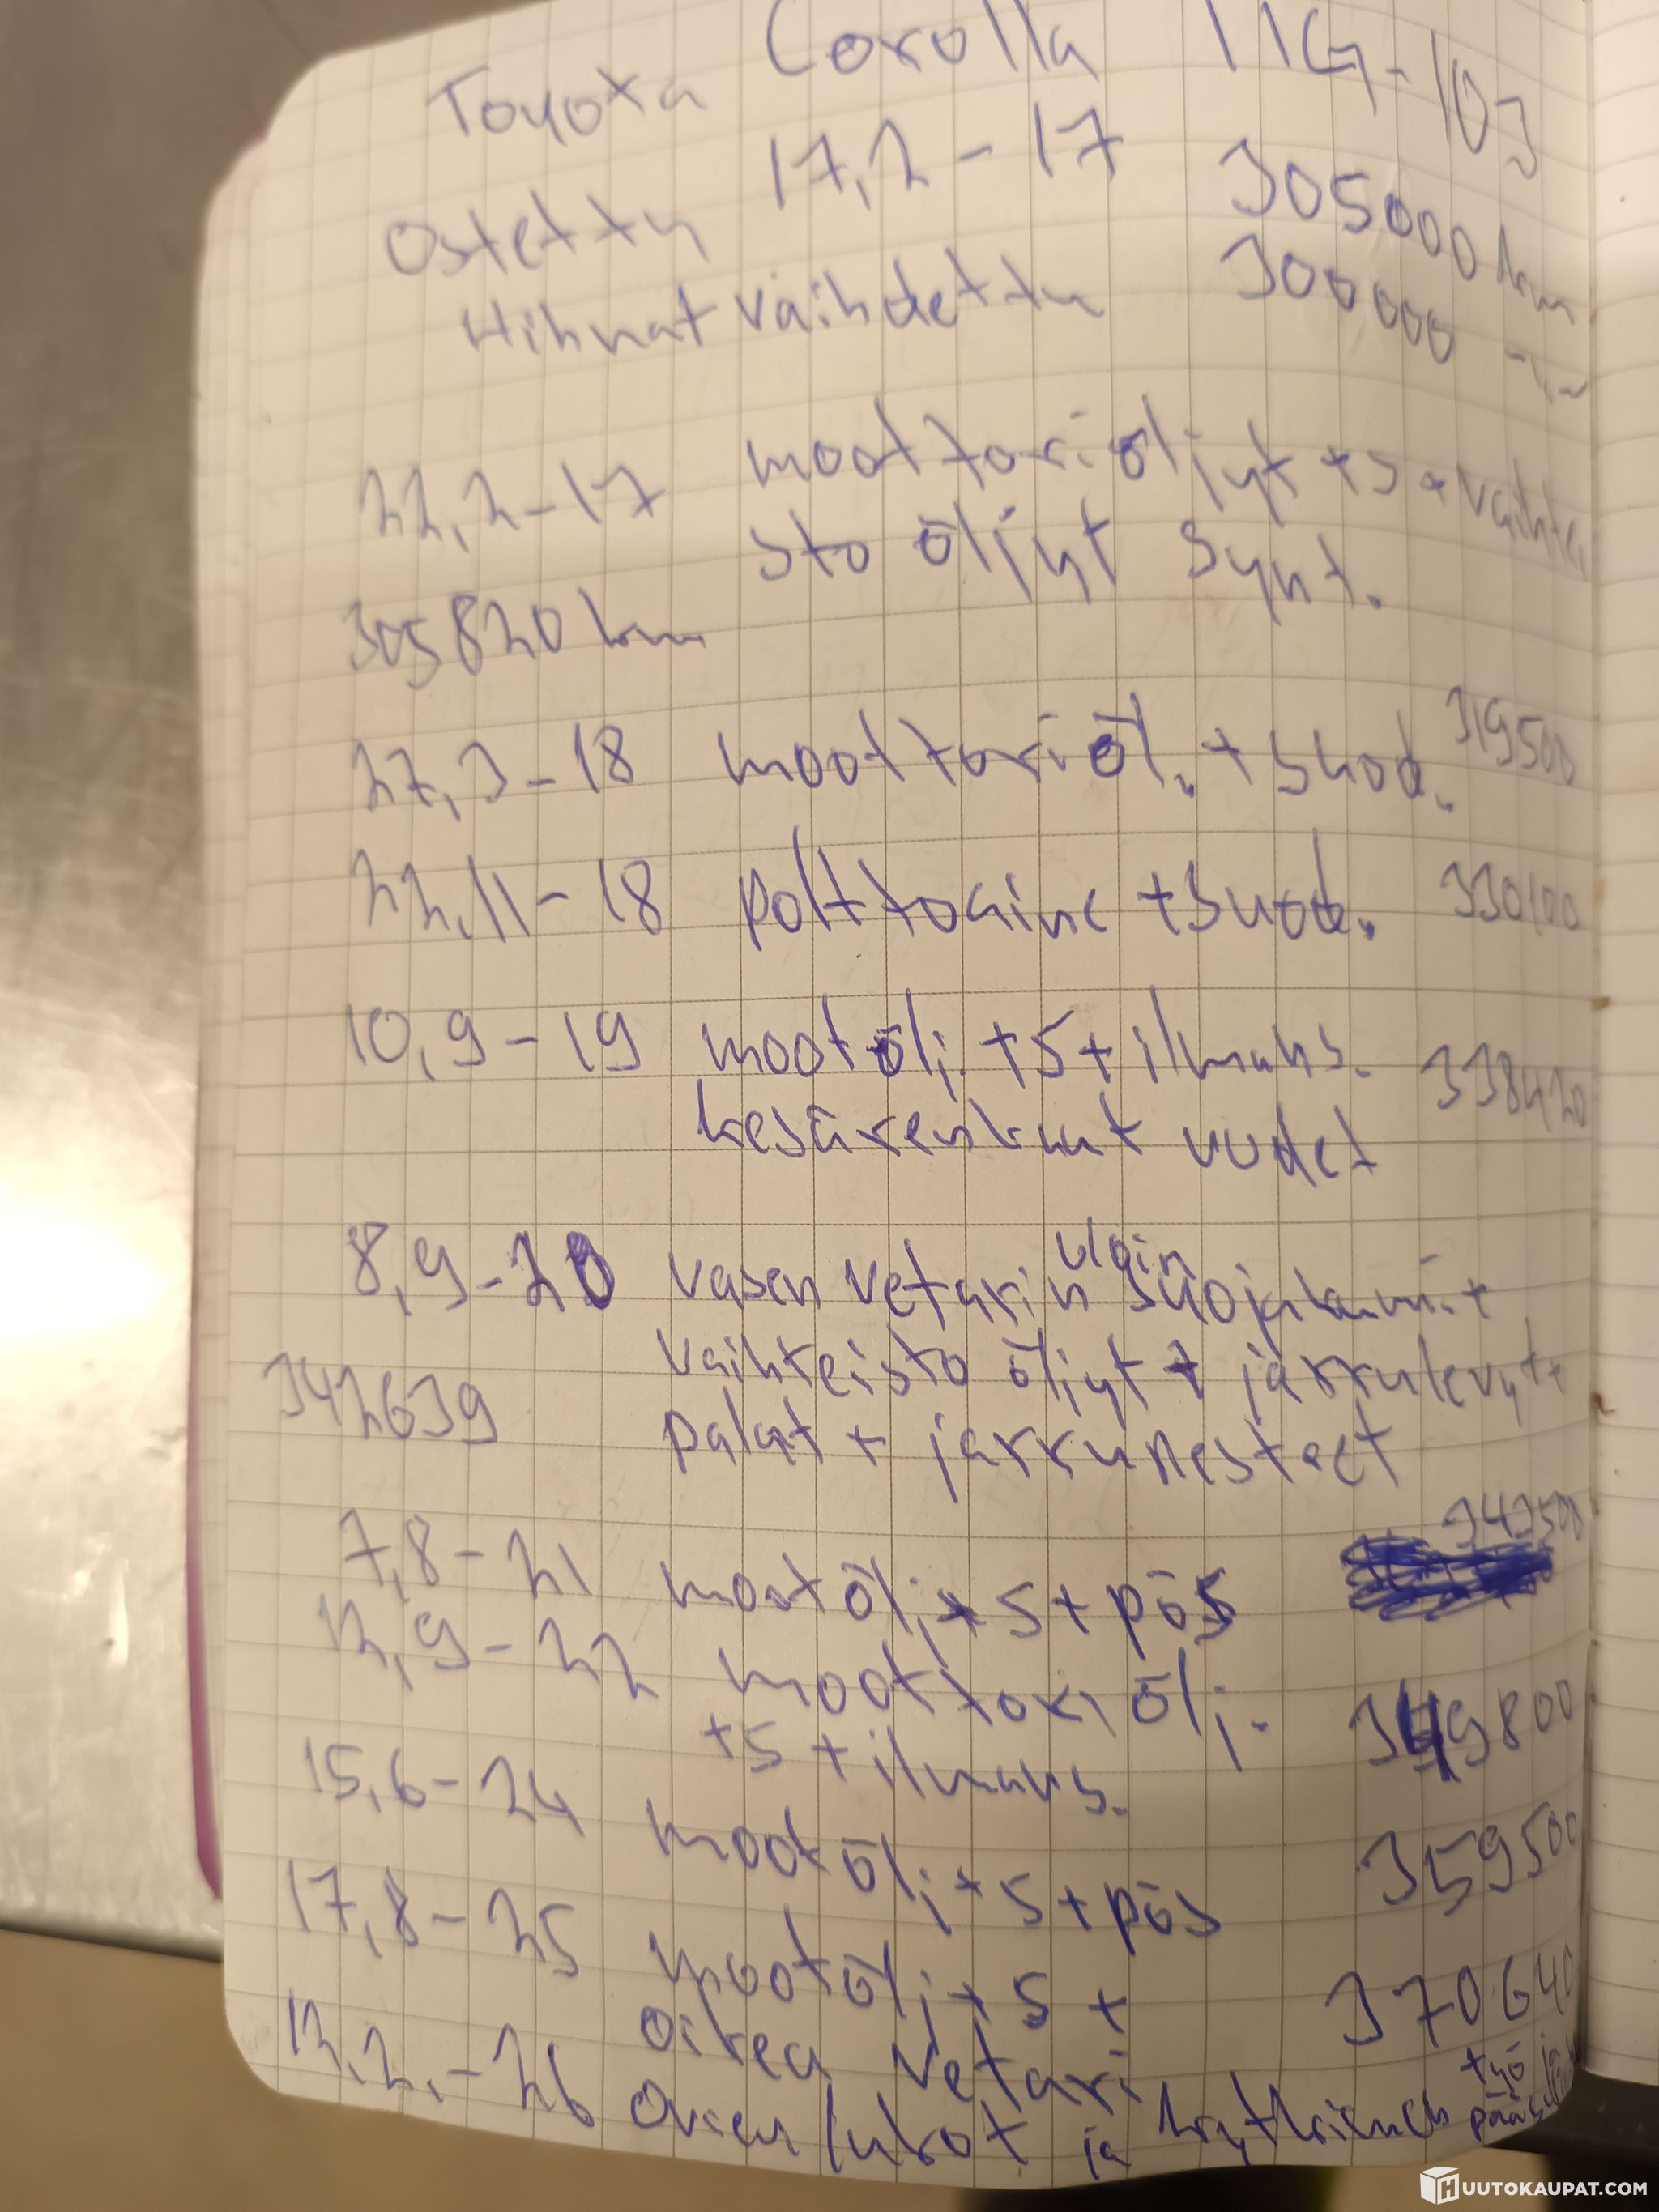 Toyota Corolla
Ostettu 17,2-17 305000 km
Hihnat vaihdettu 300000 -"-
22,2-17 moottoriöljyt + s + vaihtei
sto öljyt synt.
305820 km
27,3-18 moottoriöl. + suod. 319500
22,11-18 polttoaine + suod. 330100
10,9-19 mootölj. + s + ilmans. 338420
kesärenkaat uudet
8,9-20 vasen vetarin uloin suojakumi +
vaihteisto öljyt + järrulevyt +
342639
palat + jarrunesteet
7,8-21 mootölj + s + pös 343500
12,9-22 moottoriölj. 349800
+s + ilmans.
15,6-24 mootölj + s + pös 359500
17,8-25 mootölj + s + 370640
oikea vetari
12,2,-26 Ovien lukot ja kytkimen työ ja